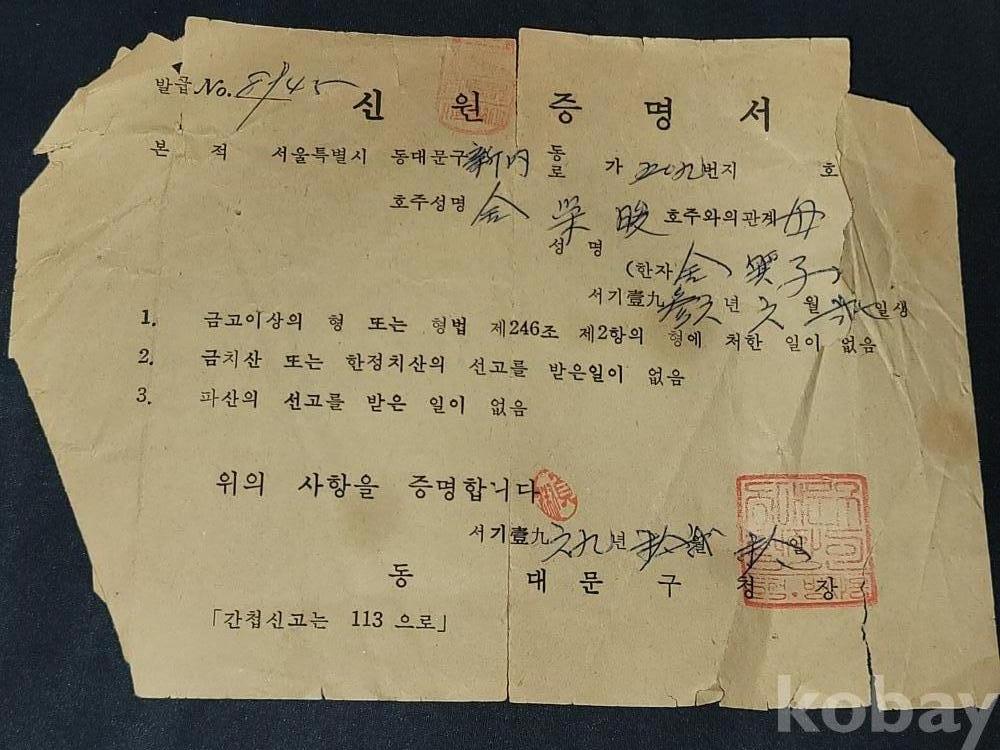 발급 No.
신 원 증 명 서
본 적 서울특별시 동대문구 新内 동 로 가 번지 호
호주성명 金 榮 晙 호주와의관계 母
성 명
(한자 金 子)
서기壹九 年 六 월 일생
1. 금고이상의 형 또는 형법 제246조 제2항의 형에 처한 일이 없음
2. 금치산 또는 한정치산의 선고를 받은일이 없음
3. 파산의 선고를 받은 일이 없음
위의 사항을 증명합니다
서기壹九六九년 일
동 대 문 구 청 장
「간첩신고는 113 으로」
kobay